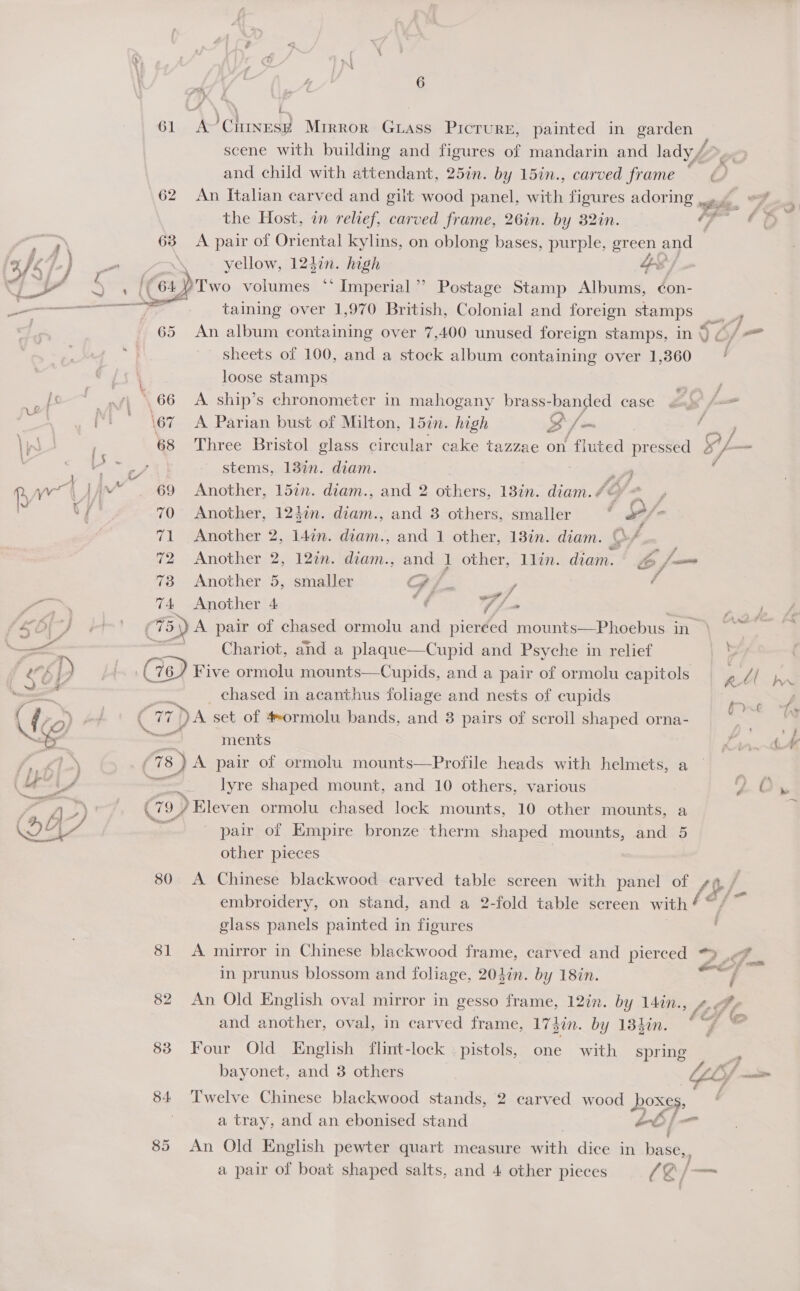 6
61 A CHINESE MIRROR GLASS PICTURE, painted in garden
scene with building and figures of mandarin and lady
and child with attendant, 25in. by 15in., carved frame
62 An Italian carved and gilt wood panel, with figures adoring
the Host, in relief, carved frame, 26in. by 32in.
63 A pair of Oriental kylins, on oblong bases, purple, green and
yellow, 12½in. high
64 Two volumes “Imperial” Postage Stamp Albums, con-
taining over 1,970 British, Colonial and foreign stamps
65 An album containing over 7,400 unused foreign stamps, in
sheets of 100, and a stock album containing over 1,360
loose stamps
66 A ship’s chronometer in mahogany brass-banded case
67 A Parian bust of Milton, 15in. high
68 Three Bristol glass circular cake tazzae on fluted pressed
stems, 13in. diam.
69 Another, 15in. diam., and 2 others, 13in. diam.
70 Another, 12½in. diam., and 3 others, smaller
71 Another 2, 14in. diam., and 1 other, 13in. diam.
72 Another 2, 12in. diam., and 1 other, 11in. diam.
73 Another 5, smaller
74 Another 4
75 A pair of chased ormolu and pierced mounts—Phoebus in
Chariot, and a plaque—Cupid and Psyche in relief
76 Five ormolu mounts—Cupids, and a pair of ormolu capitols
chased in acanthus foliage and nests of cupids
77 A set of 4 ormolu bands, and 3 pairs of scroll shaped orna-
ments
78 A pair of ormolu mounts—Profile heads with helmets, a
lyre shaped mount, and 10 others, various
79 Eleven ormolu chased lock mounts, 10 other mounts, a
pair of Empire bronze therm shaped mounts, and 5
other pieces
80 A Chinese blackwood carved table screen with panel of
embroidery, on stand, and a 2-fold table screen with
glass panels painted in figures
81 A mirror in Chinese blackwood frame, carved and pierced
in prunus blossom and foliage, 20½in. by 18in.
82 An Old English oval mirror in gesso frame, 12in. by 14in.,
and another, oval, in carved frame, 17½in. by 13½in.
83 Four Old English flint-lock pistols, one with spring
bayonet, and 3 others
84 Twelve Chinese blackwood stands, 2 carved wood boxes,
a tray, and an ebonised stand
85 An Old English pewter quart measure with dice in base,
a pair of boat shaped salts, and 4 other pieces